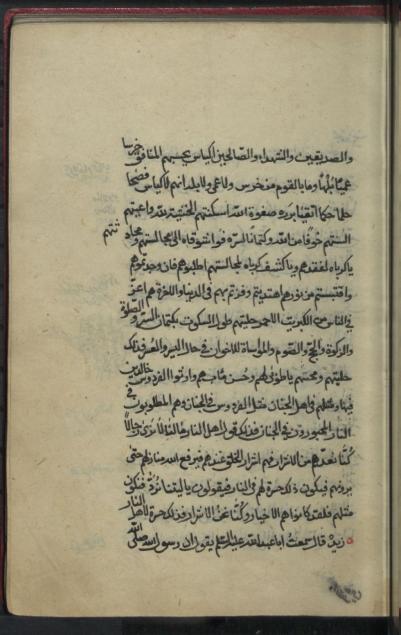 والصديقين والشهداء والصالحين اكياس يحسبهم المنافق خرسا
عميًا بُلها وما بالقوم من خرس ولا عمي ولا بلد انهم لاكياس فصحا
حلما حكما اتقيا بررة صفوة الله اسكنتهم الخشية لله واعيتهم
السنتهم خوفًا من الله وكتمانًا لسرّه فوا شوقاه الى مجالستهم ومحادثتهم
يا كرباه لفقدهم ويا كشف كرباه لمجالستهم اطلبوهم فان وجدتموهم
واقتبستم من نورهم اهتديتم وفزتم بهم في الدنيا والاخرة هم اعزّ
في الناس من الكبريت الاحمر حليتهم طول السكوت بكتمان السرّ والصلوة
والزكوة والحج والصوم والمواساة للاخوان في حال اليسر والعسر فذلك
حليتهم ومحبتهم يا طوبى لهم وحسن مآب هم وارثوا الفردوس خالدين
فيها ومثلهم في اهل الجنان مثل الفردوس في الجنان وهم المطلوبون في
النار المحبورون في الجنان فذلك قول اهل النار ما لنا لا نرى رجالًا
كنّا نعدّهم من الاشرار فهم اشرار الخلق عندهم فيرفع الله منازلهم حتى
يرونهم فيكون ذلك حسرة لهم في النار فيقولون يا ليتنا نردّ فنكون
مثلهم فلقد كانوا هم الاخيار وكنّا نحن الاشرار فذلك حسرة لاهل النار
زيد قال سمعت ابا عبد الله عليه السلم يقول ان رسول الله صلى الله